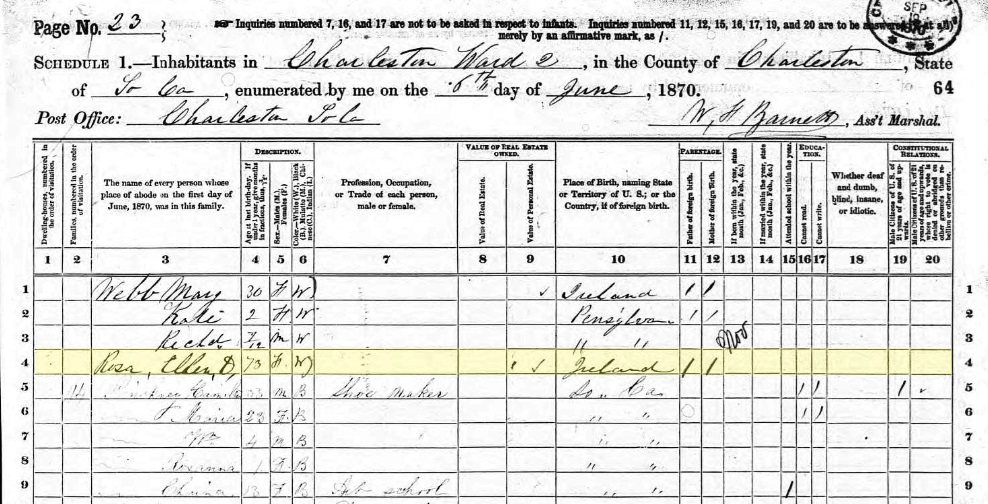 Page No. 23
Inquiries numbered 7, 16, and 17 are not to be asked in respect to infants. Inquiries numbered 11, 12, 15, 16, 17, 19, and 20 are to be answered (if at all)
merely by an affirmative mark, as /.
SEP
1870
SCHEDULE 1.—Inhabitants in Charleston Ward 2, in the County of Charleston, State
of So Ca, enumerated by me on the 6th day of June, 1870.
64
Post Office: Charleston So Ca
W. H. Barnett, Ass't Marshal.
Dwelling-houses, numbered in the order of visitation.
Families, numbered in the order of visitation.
The name of every person whose place of abode on the first day of June, 1870, was in this family.
DESCRIPTION.
Age at last birth-day. If under 1 year, give months in fractions, thus, 3/12
Sex.—Males (M.), Females (F.)
Color.—White (W.), Black (B.), Mulatto (M.), Chinese (C.), Indian (I.)
Profession, Occupation, or Trade of each person, male or female.
VALUE OF REAL ESTATE OWNED.
Value of Real Estate.
Value of Personal Estate.
Place of Birth, naming State or Territory of U. S.; or the Country, if of foreign birth.
PARENTAGE.
Father of foreign birth.
Mother of foreign birth.
If born within the year, state month (Jan., Feb., &c.)
If married within the year, state month (Jan., Feb., &c.)
Attended school within the year.
EDUCATION.
Cannot read.
Cannot write.
Whether deaf and dumb, blind, insane, or idiotic.
CONSTITUTIONAL RELATIONS.
Male Citizens of U. S. of 21 years of age and upwards.
1 2 3 4 5 6 7 8 9 10 11 12 13 14 15 16 17 18 19 20
1 Webb Mary 30 F W Ireland / / 1
2 Kate 2 F W Pensylva / / 2
3 Richd /12 M W " " Nov 3
4 Rosa, Ellen, D, 73 F W Ireland / / 4
5 14 M B Shoe maker So. Ca. / / / 5
6 Maria 23 F B " " / / 6
7 Wm 4 M B " " 7
8 Roxanna 1 F B " " 8
9 13 F B school " " / 9